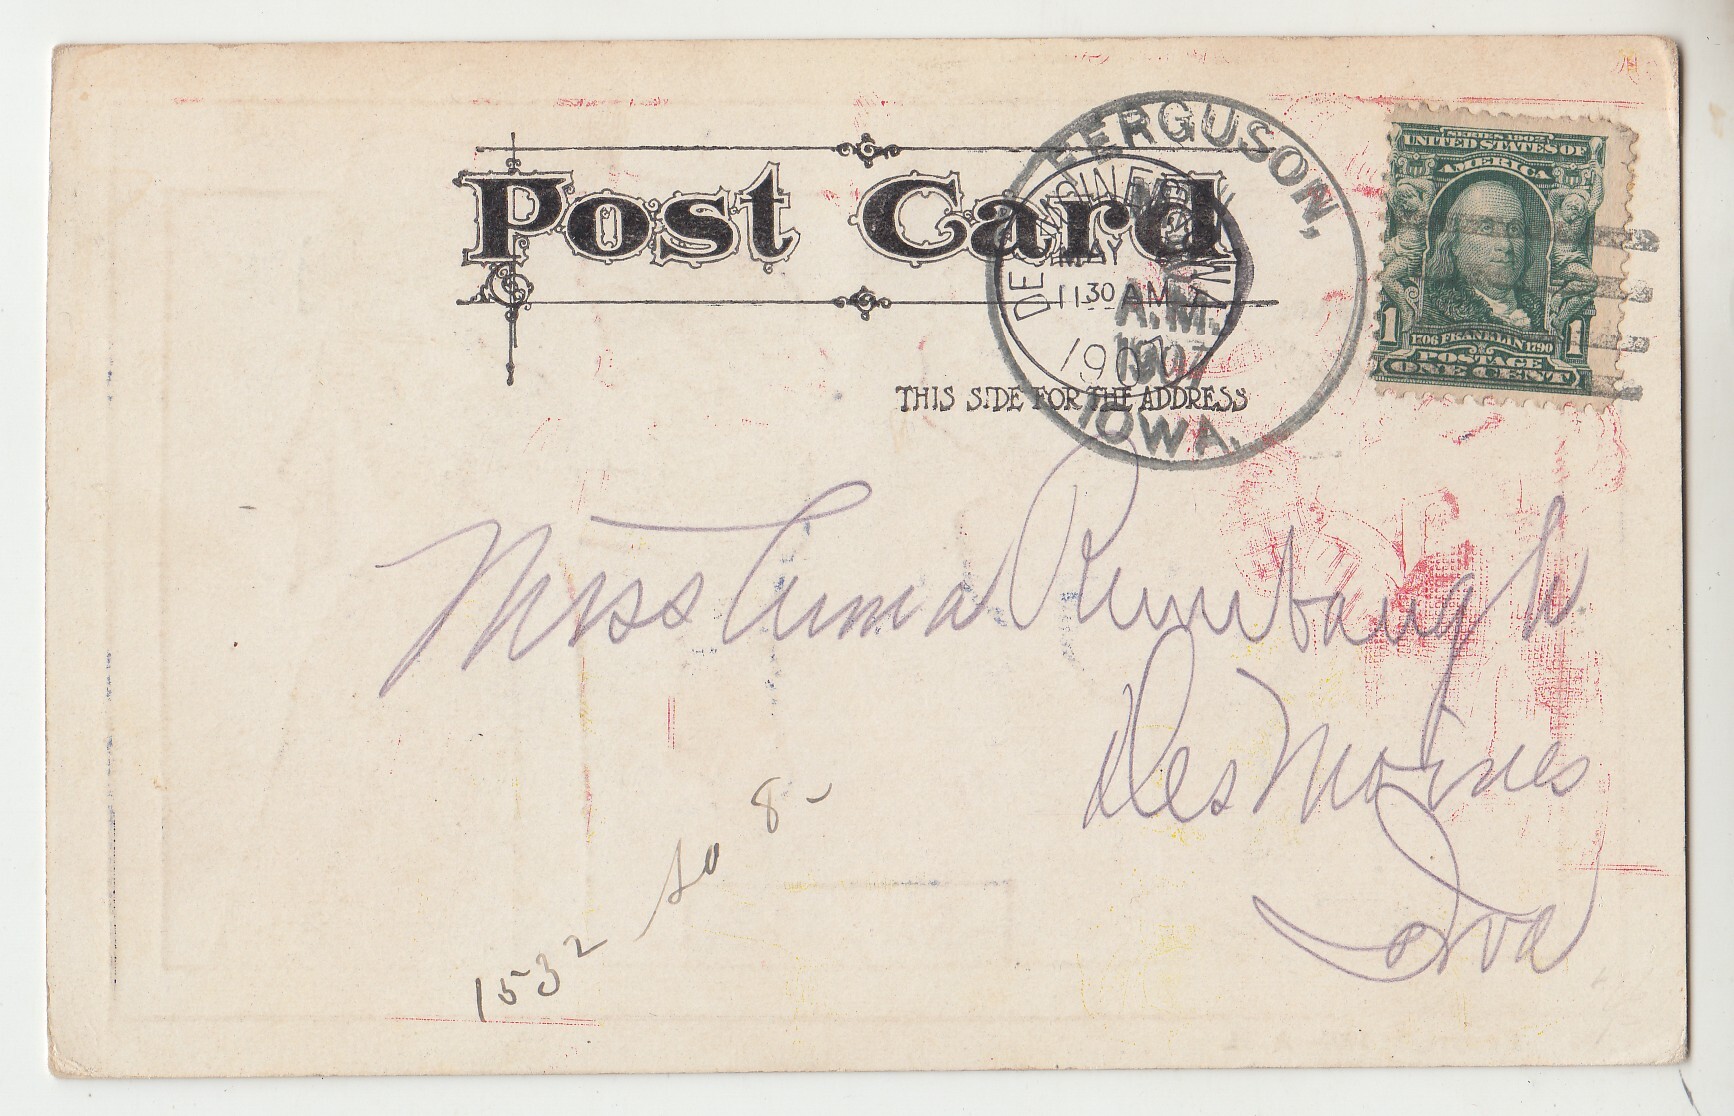 Post Card
THIS SIDE FOR THE ADDRESS
FERGUSON,
MAY
A.M.
1907
IOWA.
DES MOINES
MAY
11 30 AM
1907
SERIES 1902
UNITED STATES OF
AMERICA
1706 FRANKLIN 1790
1 POSTAGE 1
ONE CENT
Miss Anna Rumbaugh.
Des Moines
Iowa
1532 so 8 -